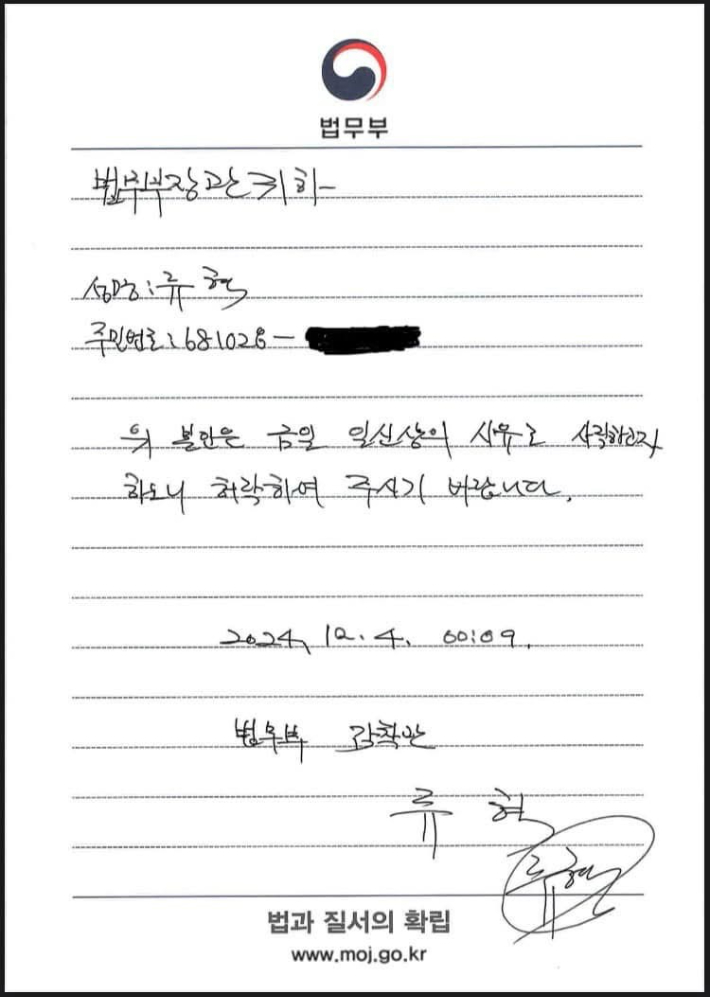 법무부
법무부장관 귀하
성명: 류 혁
주민번호: 681028-
위 본인은 금일 일신상의 사유로 사직하고자
하오니 허락하여 주시기 바랍니다.
2024. 12. 4. 00:09.
법무부 감찰관
류 혁
류혁
법과 질서의 확립
www.moj.go.kr